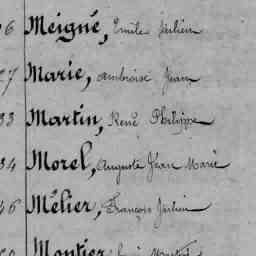 6 Meigné, Emile Julien
27 Marie, Ambroise Jean
33 Martin, René Philippe
34 Morel, Auguste Jean Marie
46 Mélier, François Julien
Montier,